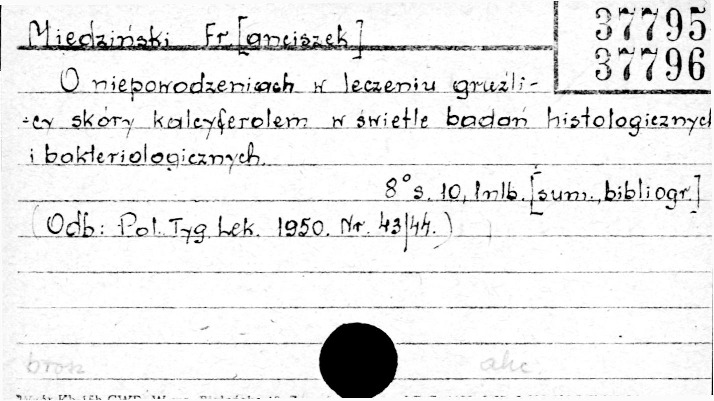 37795
37796
Miedziński Fr.[anciszek]
O niepowodzeniach w leczeniu gruźli-
-cy skóry kalcyferolem w świetle badań histologicznych
i bakteriologicznych.
8° s. 10, 1nlb. [sum., bibliogr.]
(Odb: Pol. Tyg. Lek. 1950. Nr. 43/44.)
brosz
akc.